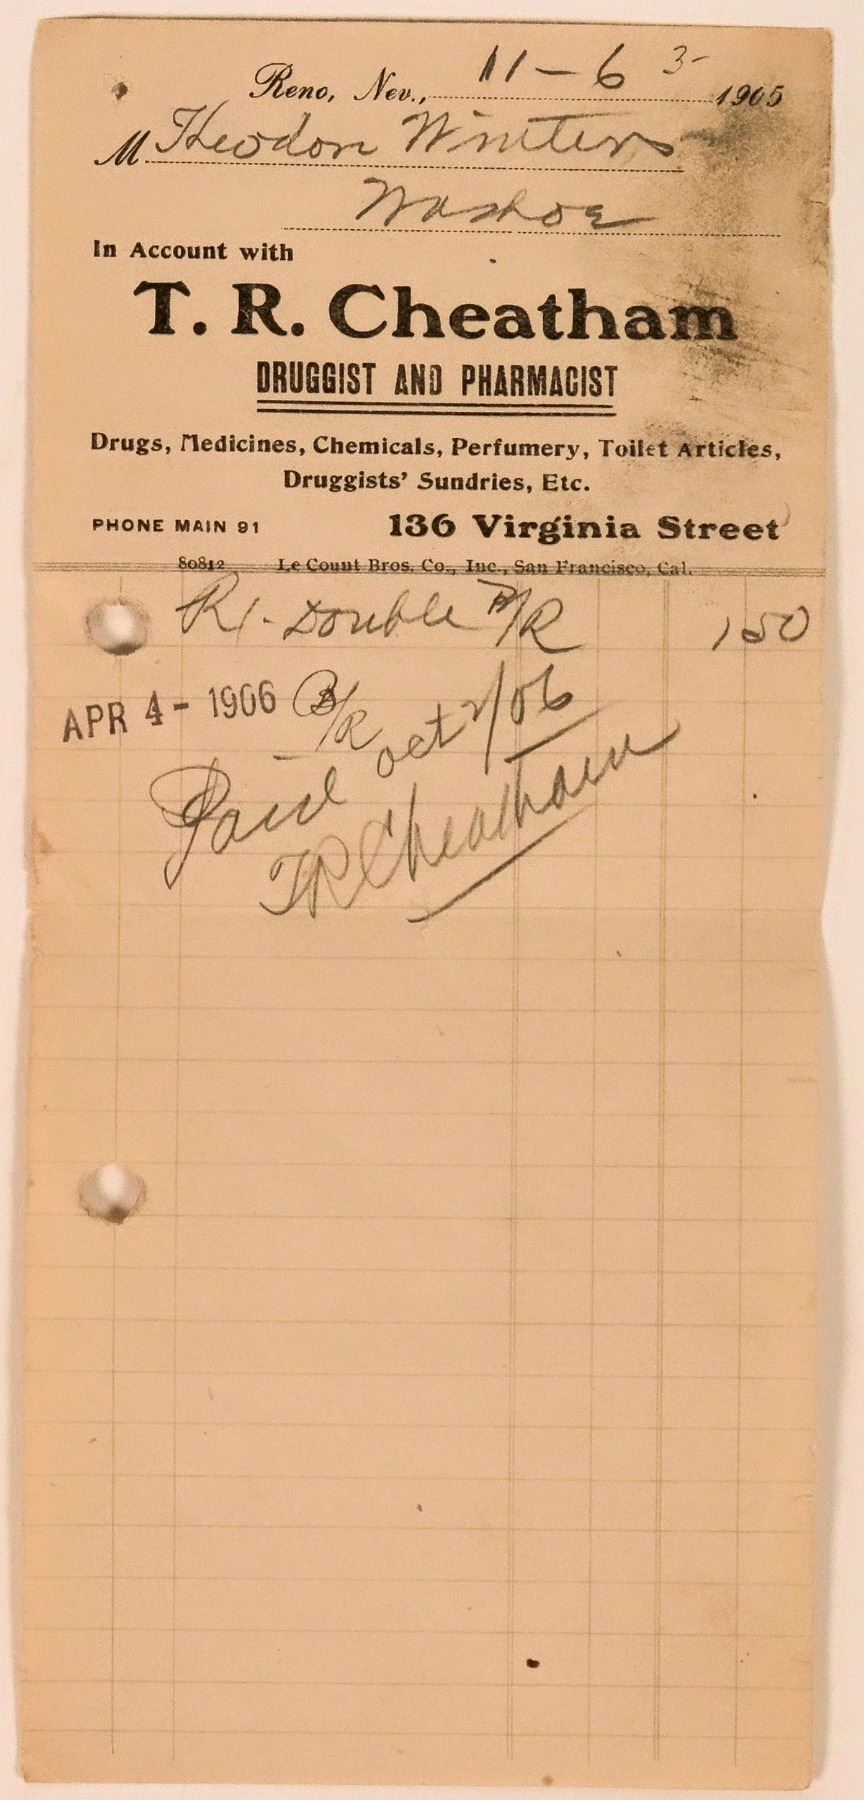 Reno, Nev., 11-6 1905
M Theodore Winters
Washoe
In Account with
T. R. Cheatham
DRUGGIST AND PHARMACIST
Drugs, Medicines, Chemicals, Perfumery, Toilet Articles,
Druggists' Sundries, Etc.
PHONE MAIN 91 136 Virginia Street
80812 Le Count Bros. Co., Inc., San Francisco, Cal.
Double 1 50
APR 4 - 1906 B/R
Oct 2/06
Paid
TR Cheatham